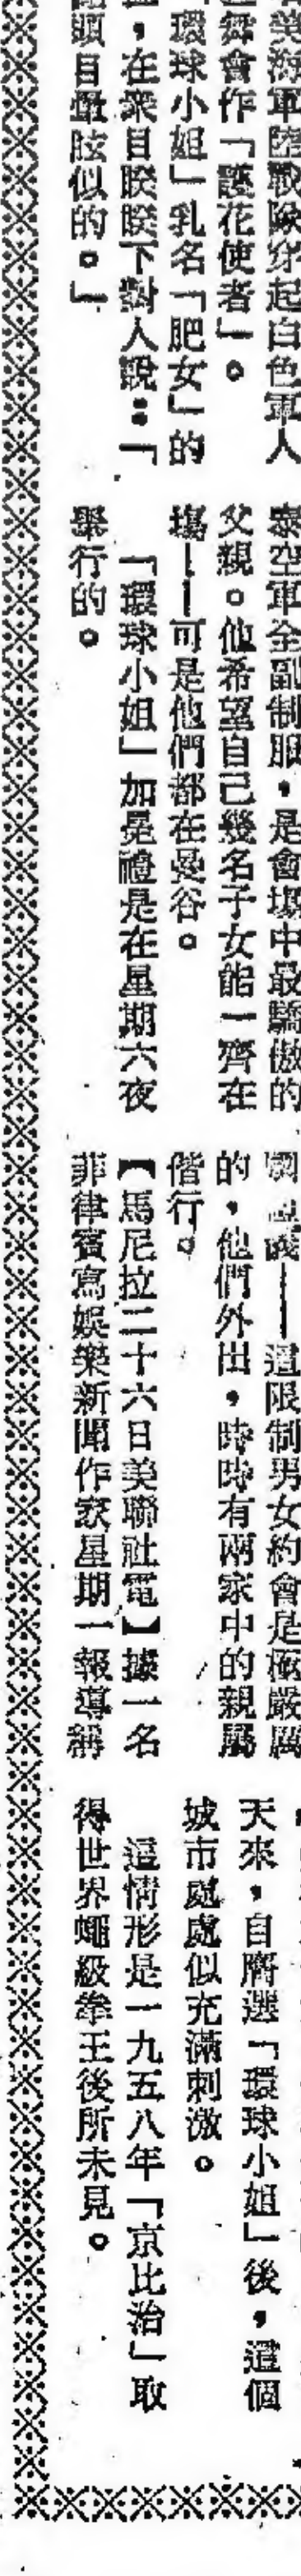 美海軍陸戰隊穿起白色軍人
舞會作「護花使者」。
「環球小姐」乳名「肥女」的
,在衆目睽睽下對人說:「
頭目暈眩似的。」
泰空軍全副制服,是會場中最驕傲的
父親。他希望自己幾名子女能一齊在
場——可是他們都在曼谷。
「環球小姐」加晃禮是在星期六夜
舉行的。
——這限制男女約會是極嚴厲
的,他們外出,時時有兩家中的親屬
偕行。
【馬尼拉二十六日美聯社電】據一名
菲律賓寫娛樂新聞作家星期一報導稱
天來,自膺選「環球小姐」後,這個
城市處處似充滿刺激。
這情形是一九五八年「京比治」取
得世界蠅級拳王後所未見。